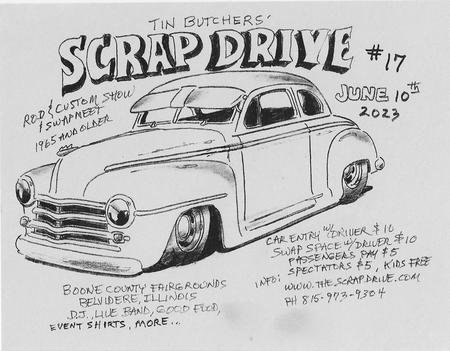 TIN BUTCHERS'
SCRAP DRIVE #17
JUNE 10th
2023
ROD & CUSTOM SHOW
& SWAP MEET
1965 AND OLDER
CAR ENTRY W/ DRIVER $10
SWAP SPACE W/ DRIVER $10
PASSENGERS PAY $5
SPECTATORS $5, KIDS FREE
INFO: WWW.THESCRAPDRIVE.COM
PH 815-973-9304
BOONE COUNTY FAIRGROUNDS
BELVIDERE, ILLINOIS
D.J., LIVE BAND, GOOD FOOD,
EVENT SHIRTS, MORE...